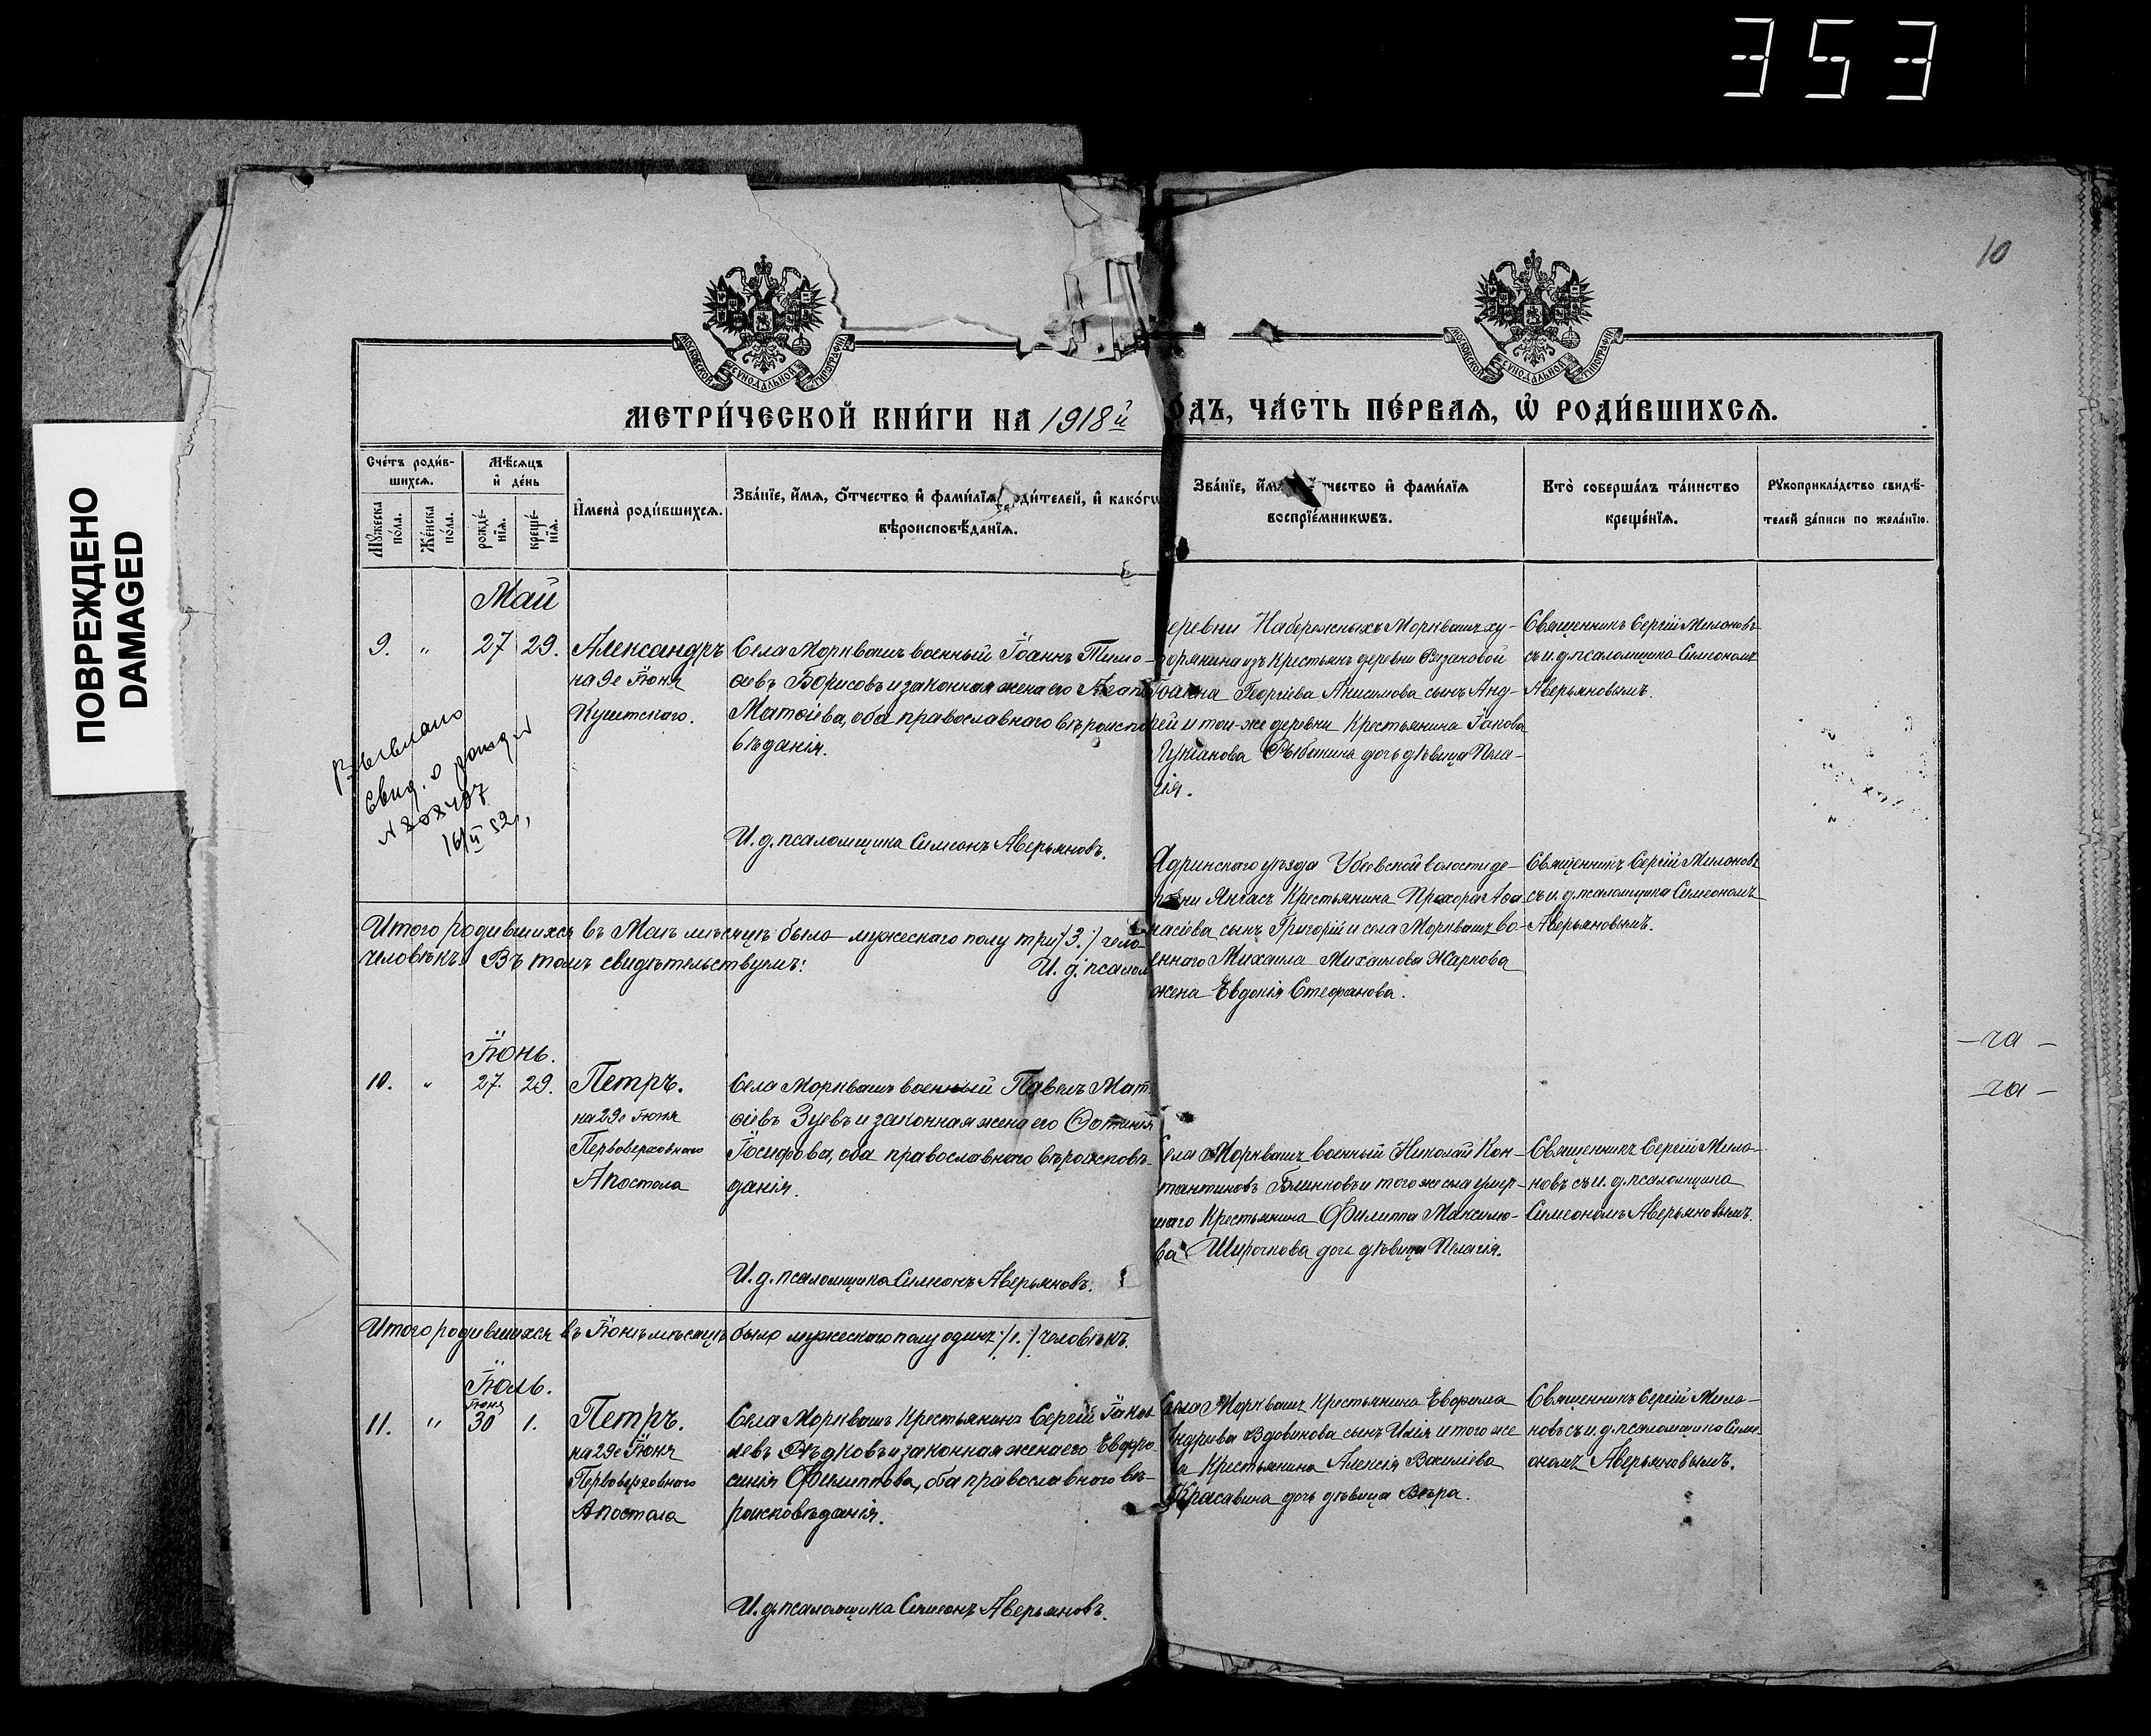 353
ПОВРЕЖДЕНО
DAMAGED
10
МОСКОВСКОЙ СѴНОДАЛЬНОЙ ТИПОГРАФІИ
МОСКОВСКОЙ СѴНОДАЛЬНОЙ ТИПОГРАФІИ
МЕТРИ́ЧЕСКОЙ КНИ́ГИ НА 1918й
О́ДЪ, ЧА́СТЬ ПЕ́РВАѦ, Ѡ҆ РОДИ́ВШИХСѦ.
Сче́тъ роди́в-
шихсѧ.
Мѣ́сѧцъ
и҆ де́нь
Мꙋ́жеска по́ла.
Же́нска по́ла.
рожде́-нїѧ.
креще́-нїѧ.
И҆мена̀ роди́вшихсѧ.
Зва́нїе, и҆́мѧ, ѻ҆́тчество и҆ фами́лїѧ роди́телей, и҆ како́гѡ
вѣроисповѣ́данїѧ.
Зва́нїе, и҆́мѧ чество и҆ фами́лїѧ
воспрїе́мникѡвъ.
Кто̀ соверша́лъ та́инство
креще́нїѧ.
Рꙋкоприкла́дство свидѣ́-
телей за́писи по жела́нїю.
Май
9. " 27 29. Александръ
на 9е Іюня
Куштскаго.
Села Моркваши военный Іоаннъ Тимо-
ѳеевъ Борисовъ и законная жена его
Матѳіева, оба православнаго вѣроиспо
вѣданія.
И. д. псаломщика Симеонъ Аверьяновъ.
еревни Набережныхъ Морквашъ ху-
из крестьянъ деревни Вязановой
Георгіева Анисимова сынъ Анд-
рей и той-же деревни крестьянина Іакова
Рыбакина дочь дѣвица Пела-
гія.
Священникъ Сергій Милоновъ
съ и. д. псаломщика Симеономъ
Аверьяновымъ.
Выслано
свид. о рожд.
16/II 52,
Ядринскаго уѣзда Убеевской волости де-
ревни Янгасъ крестьянина Прохора Аѳа
насіева сынъ Григорій и села Моркваши во-
еннаго Михаила Михаилова Жаркова
жена Евдокія Стефанова.
Священникъ Сергій Милоновъ
съ и. д. псаломщика Симеономъ
Аверьяновымъ.
Итого родившихся въ Маѣ мѣсяцѣ было мужескаго полу три /:3.:/ чело-
человѣкъ. Въ томъ свидѣтельствуемъ: И. д. псалом
-га-
-га-
Іюнь.
10. " 27. 29. Петръ.
на 29е Іюня
Первоверховнаго
Апостола
Села Моркваши военный Павелъ Мат
ѳіевъ Зуевъ и законная жена его Фотинія
Іосифова, оба православнаго вѣроисповѣ-
данія.
И. д. псаломщика Симеонъ Аверьяновъ.
Села Моркваши военный Николай Кон-
стантиновъ Блинковъ и того же села умер-
шаго крестьянина Филиппа Максимо-
ва Широчкова дочь дѣвица Пелагія.
Священникъ Сергій Мило-
новъ съ и. д. псаломщика
Симеономъ Аверьяновымъ.
Итого родившихся въ Іюнѣ мѣсяцѣ было мужескаго полу одинъ /:1.:/ человѣкъ.
Іюль.
Іюня
11. " 30 1. Петръ.
на 29е Іюня
Первоверховнаго
Апостола
Села Моркваши крестьянинъ Сергій Іаков
левъ Рѣдковъ и законная жена его Евфро
синія Филиппова, оба православнаго вѣ-
роисповѣданія.
И. д. псаломщика Симеонъ Аверьяновъ.
Села Моркваши крестьянина Евфрема
Андреева Вдовинова сынъ Илія и того же
ла крестьянина Алексія Василіева
Красавина дочь дѣвица Вѣра.
Священникъ Сергій Мило-
новъ съ и. д. псаломщика Симе
ономъ Аверьяновымъ.